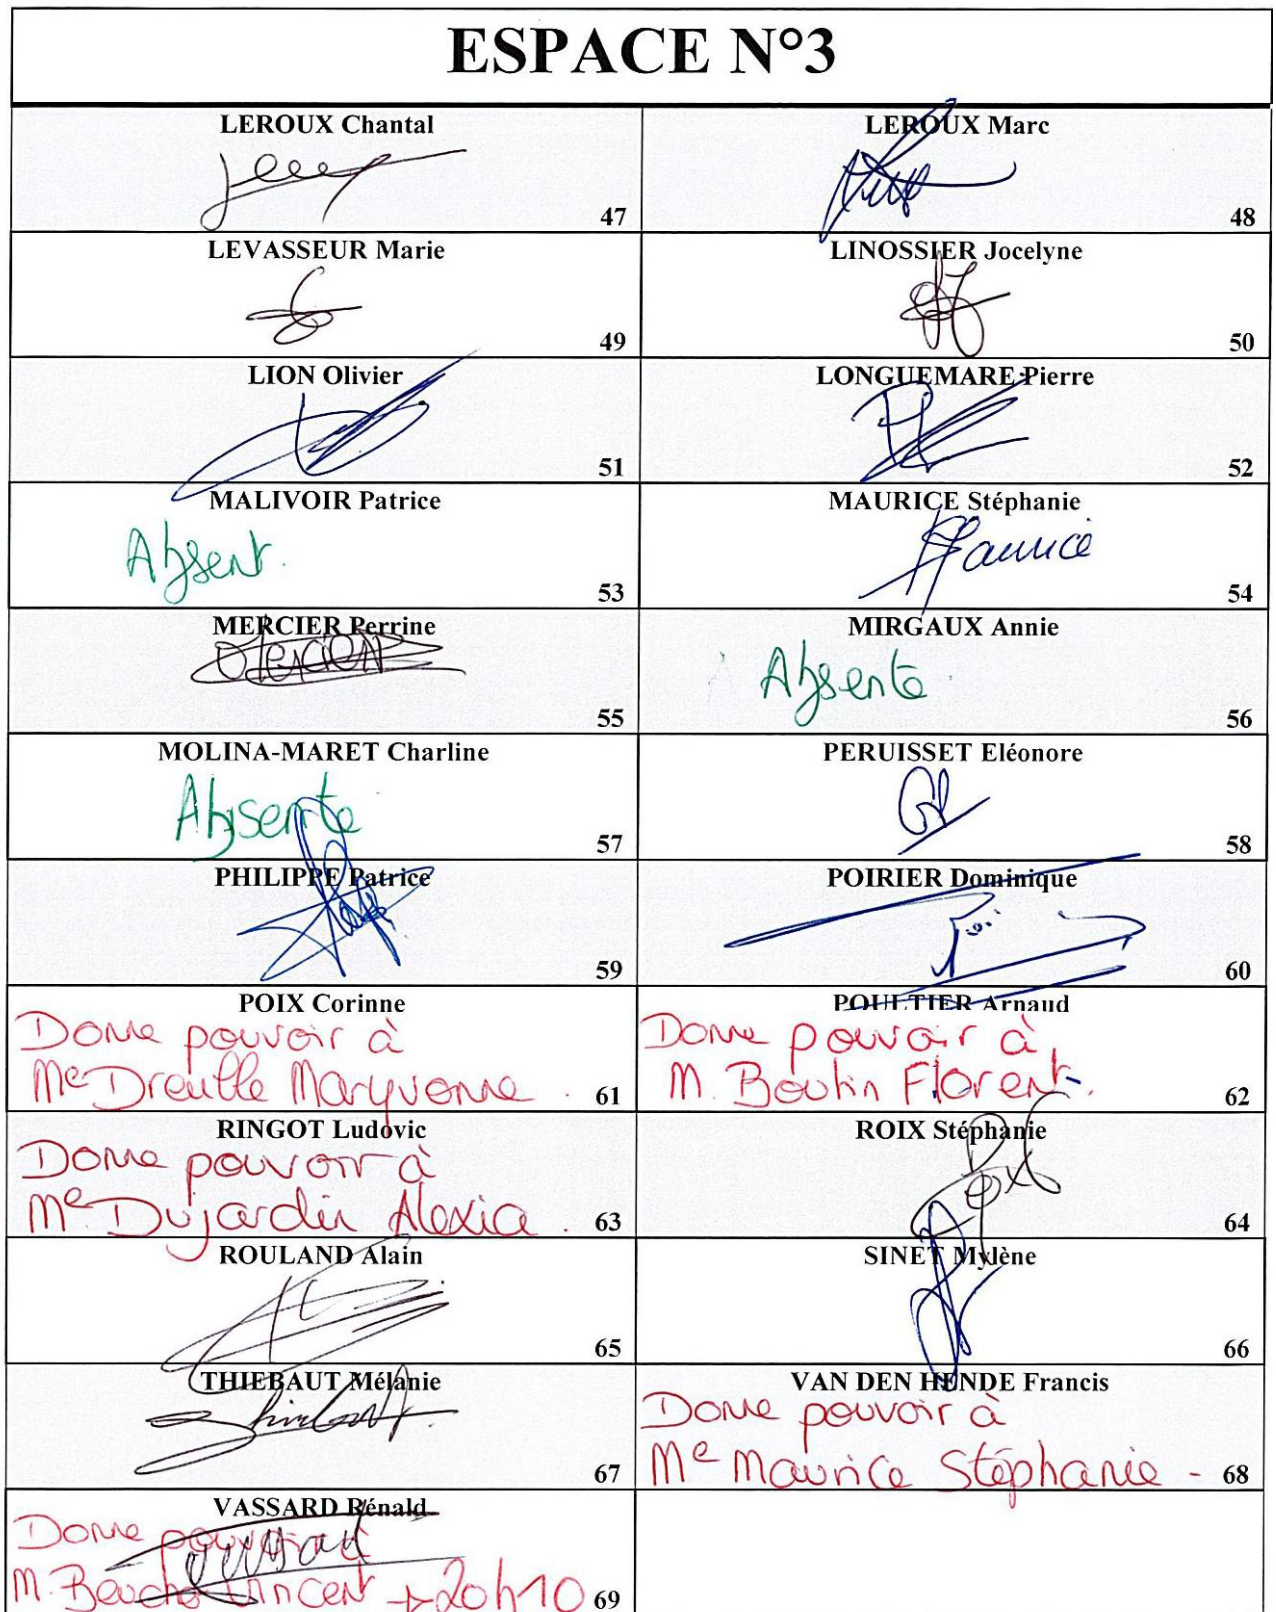 ESPACE N°3
LEROUX Chantal
47
LEROUX Marc
48
LEVASSEUR Marie
49
LINOSSIER Jocelyne
50
LION Olivier
51
LONGUEMARE Pierre
52
MALIVOIR Patrice
Absent.
53
MAURICE Stéphanie
Maurice
54
MERCIER Perrine
Mercier
55
MIRGAUX Annie
Absente
56
MOLINA-MARET Charline
Absente
57
PERUISSET Eléonore
58
PHILIPPE Patrice
59
POIRIER Dominique
60
POIX Corinne
Donne pouvoir à
Me Dreulle Maryvonne.
61
POULTIER Arnaud
Donne pouvoir à
M. Boutin Florent.
62
RINGOT Ludovic
Donne pouvoir à
Me Dujardin Alexia.
63
ROIX Stéphanie
64
ROULAND Alain
65
SINET Mylène
66
THIEBAUT Mélanie
67
VAN DEN HENDE Francis
Donne pouvoir à
Me Maurice Stéphanie -
68
VASSARD Rénald
Donne pouvoir à
M. Vincent → 20h10
69